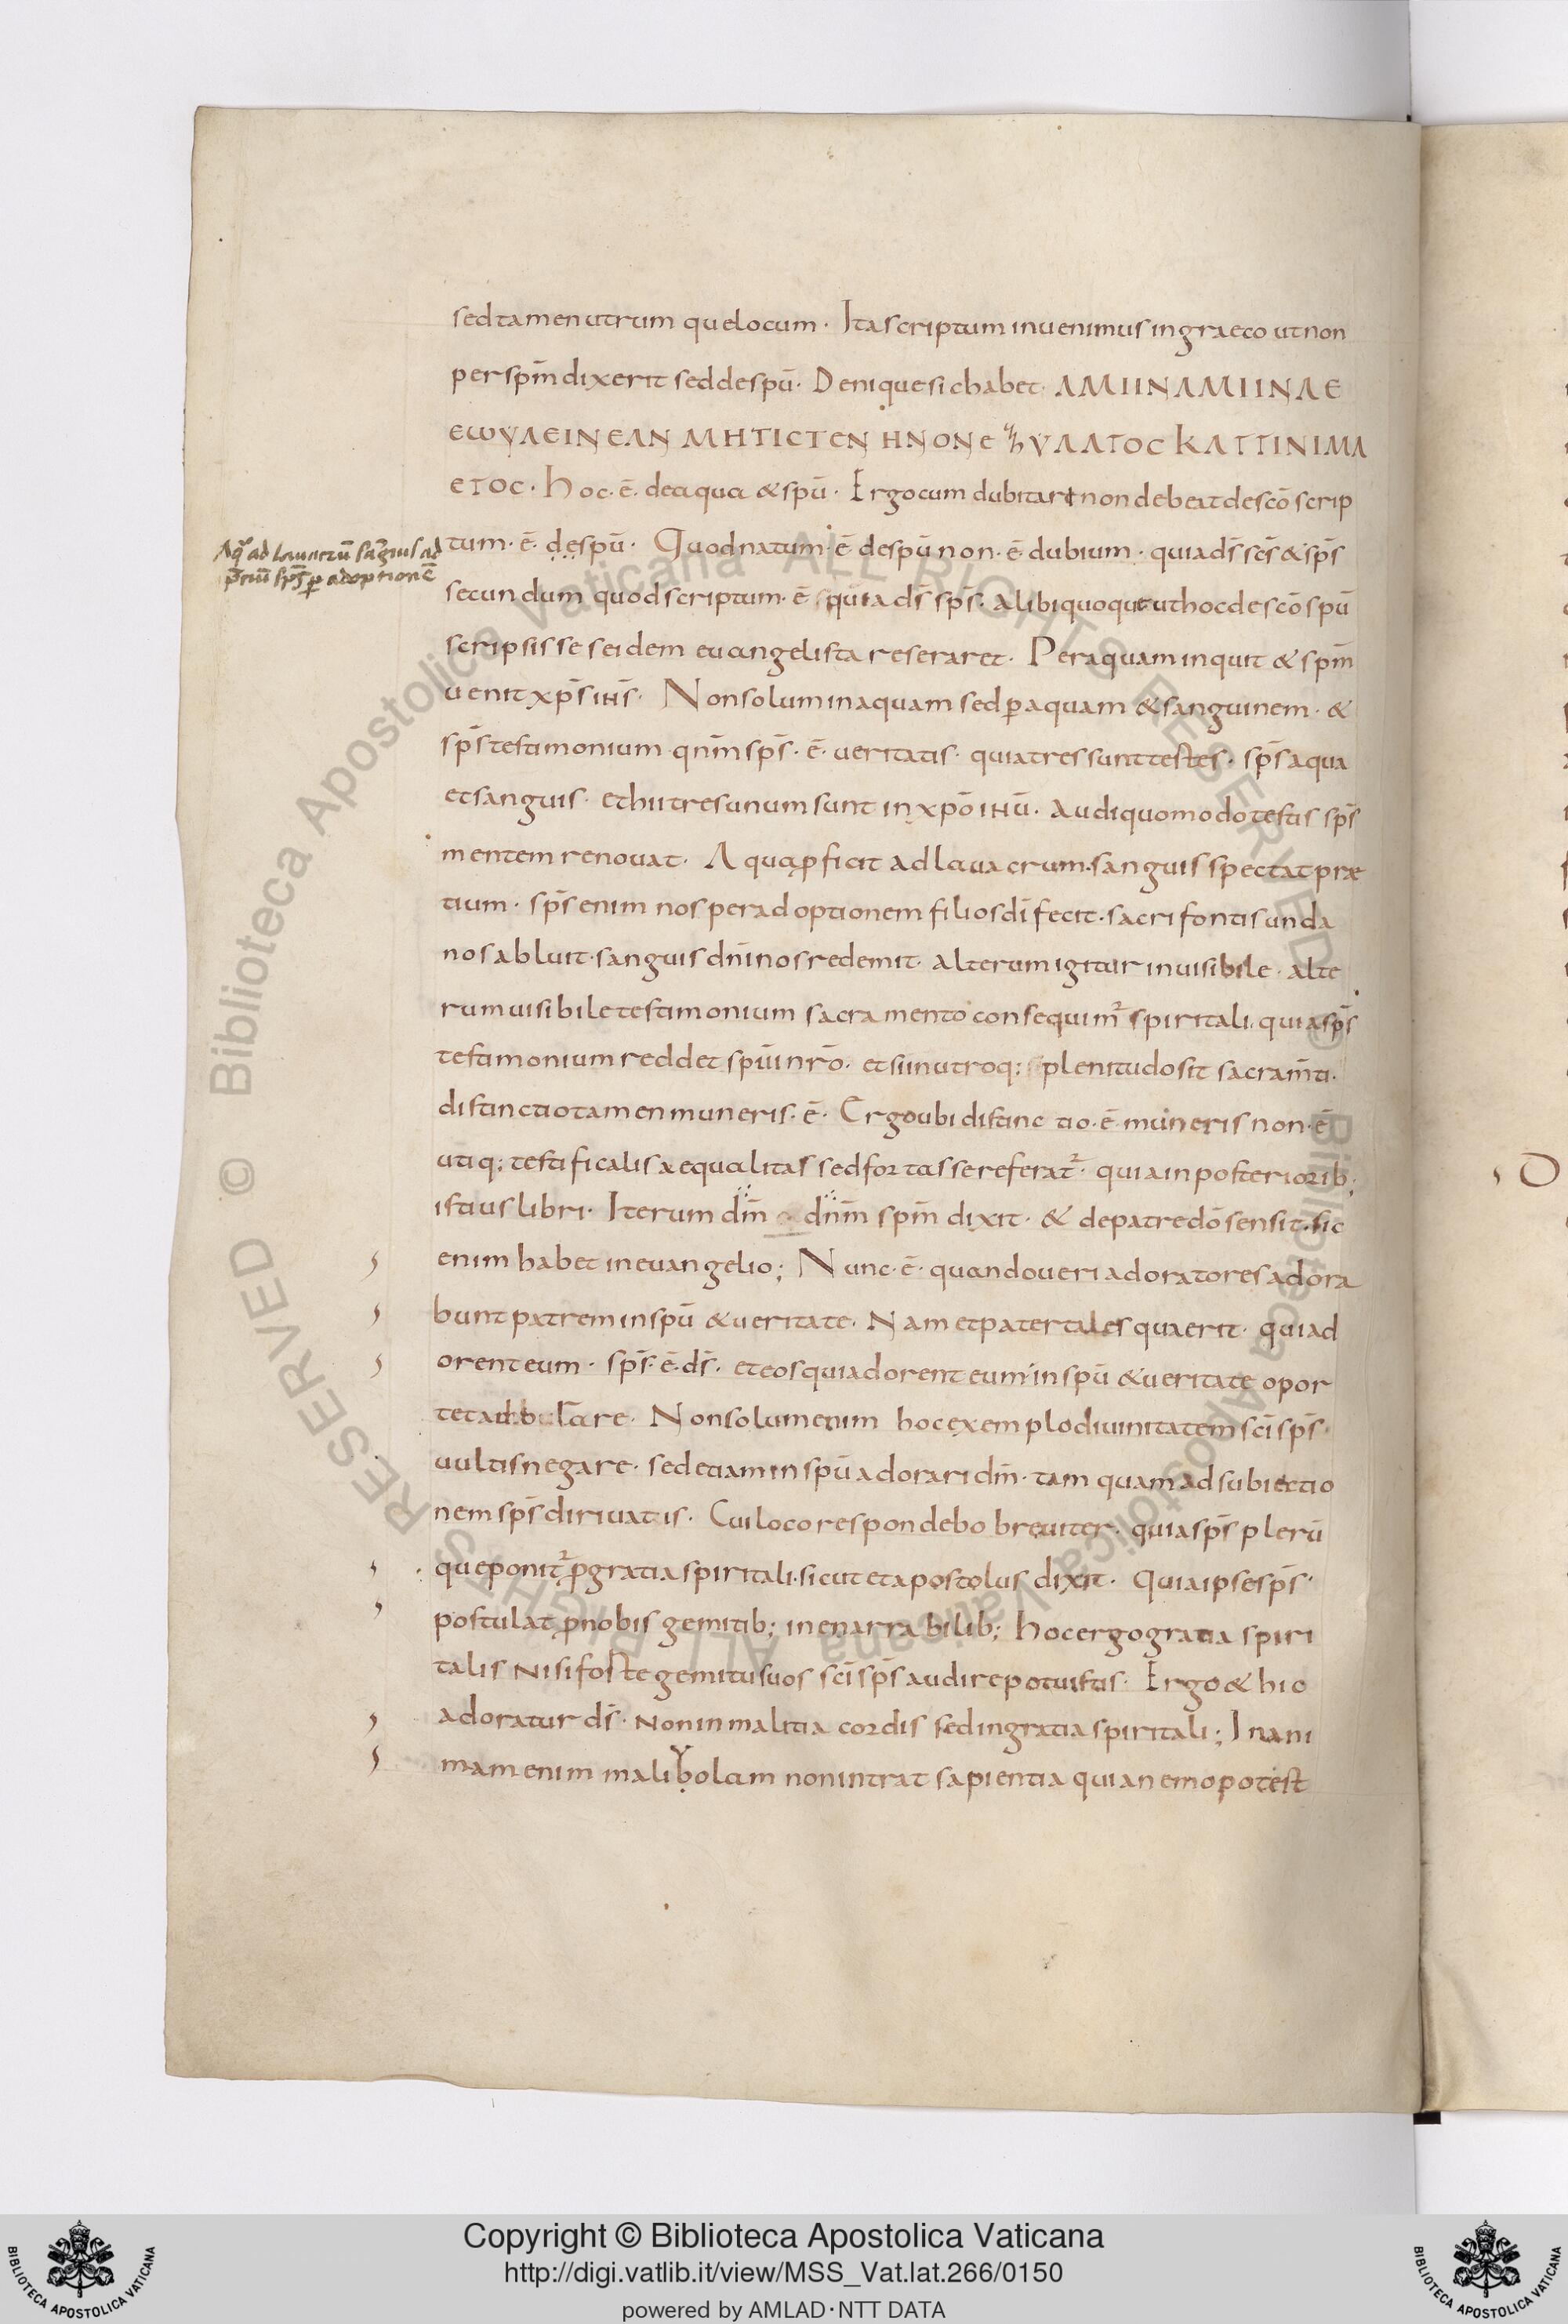 sed tamen utrumque locum · Ita scriptum invenimus in graeco ut non
per spm̄ dixerit sed de spū · Denique sic habet · ΑΜΙΙΝΑΜΙΙΝΛΕ
ЄΩΥΛЄΙΝЄΛΝ ΜΗΤΙСΤЄΝ ΗΝΟΝЄ ΥΛΛΤΟС ΚΛΤΤΙΝΙΜΛ
ЄΤΟС · Hoc · ē · de aqua & spū · Ergo cum dubitari non debeat de scō scrip
tum · ē · de spū · Quod natum · ē · de spū non · ē · dubium · quia ds̄ scs̄ & sps̄
Aq̄ ad lavacrū sanguis ad
p̄tiū sps̄ p adoptionē
secundum quod scriptum · ē quia ds̄ sps̄ · alibi quoque ut hoc de scō spū
scripsisse se idem evangelista reseraret · Per aquam inquit & spm̄
venit xps̄ ihs̄ · Non solum in aquam sed p aquam & sanguinem · &
sps̄ testimonium qnm̄ sps̄ · ē · veritatis · quia tres sunt testes · sps̄ aqua
et sanguis · et hii tres unum sunt in xpō ihū · Audi quomodo testis sps̄
mentem renovat · Aqua pficit ad lavacrum · sanguis spectat præ
tium · sps̄ enim nos per adoptionem filios dī fecit · sacri fontis unda
nos abluit · sanguis dnī nos redemit · alterum igitur invisibile · alte
rum visibile testimonium sacramento consequim² spiritali · quia sps̄
testimonium reddet spūi nrō · etsi in utroq; plenitudo sit sacram̄ti ·
distinctio tamen muneris · ē · Ergo ubi distinctio · ē · muneris non · ē
utiq; testificalis aequalitas sed fortasse referat² · quia in posteriorib;
istius libri · Iterum dm̄ dnm̄ spm̄ dixit · & de patre dō sensit · sic
enim habet in evangelio; Nunc · ē · quando veri adoratores adora
bunt patrem in spū & veritate · Nam et pater tales quaerit · qui ad
orent eum · sps̄ · ē · ds̄ · et eos qui adorent eum in spū & veritate opor
tet · Non solum enim hoc exemplo divinitatem scī sps̄ ·
vultis negare · sed etiam in spū adorari dm̄ · tamquam ad subiectio
nem sps̄ dirivatis · Cui loco respondebo breviter · quia sps̄ plerū
que ponit² p gratia spiritali · sicut et apostolus dixit · Quia ipse sps̄ ·
postulat p nobis gemitib; inenarrabilib; hoc ergo gratia spiri
talis nisi foste gemitu suos scī sps̄ audire potuistis · Ergo & hic
adoratur ds̄ · non in malitia cordis sed in gratia spiritali; In ani
mam enim malibolam non intrat sapientia quia nemo potest
Copyright © Biblioteca Apostolica Vaticana
http://digi.vatlib.it/view/MSS_Vat.lat.266/0150
powered by AMLAD·NTT DATA